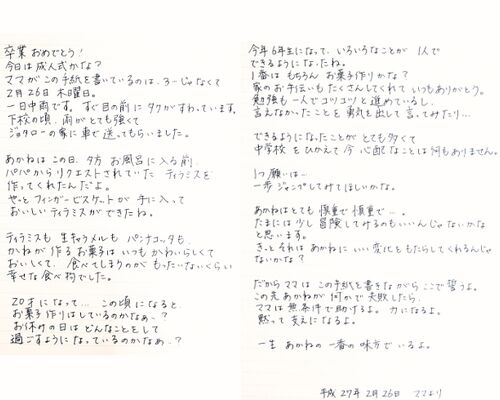 卒業おめでとう！
今日は成人式かな？
ママがこの手紙を書いているのは、3．じゃなくて
2月26日 木曜日。
一日中雨です。すぐ目の前にタクがすわっています。
下校の頃、雨がとても強くて
ジョタローの家に車で送ってもらいました。
あかねはこの日、夕方 お風呂に入る前、
パパからリクエストされていた ティラミスを
作ってくれたんだよ。
やっとフィンガービスケットが手に入って
おいしいティラミスができたね。
ティラミスも 生キャラメルも パンナコッタも、
かねが作るお菓子は いつも かわいらしくて
おいしくて、食べてしまうのが もったいないくらい
幸せな食べ物でした。
20才になって… この頃になると
お菓子作りはしているのかなぁ〜？
お休みの日は どんなことをして
過ごすようになっているのかなぁ、？
今年6年生になって、いろいろなことが 1人で
できるようになったね。
1番は もちろん お菓子作りかな？
家のお手伝いも たくさんしてくれて いつもありがとう。
勉強も 一人で コツコツと進めているし、
言えなかったことを 勇気を出して 言ってみたり…
できるようになったことが とても多くて
中学校をひかえて 今 心配なことは何もありません。
1つ 願いは…
一歩 ジャンプしてみてほしいかな。
あかねはとても 慎重で慎重で…。
たまには少し 冒険してみるのもいいんじゃないかな
と思います。
きっと それは あかねに いい変化をもたらしてくれるんじゃ
ないかな？
だから ママは この手紙を書きながら ここで誓うよ。
この先 あかねが 何かで失敗したら、
ママは 無条件で助けるよ。 力になるよ。
黙って 支えになるよ。
一生 あかねの 一番の味方でいるよ。
平成 27年 2月26日 ママより